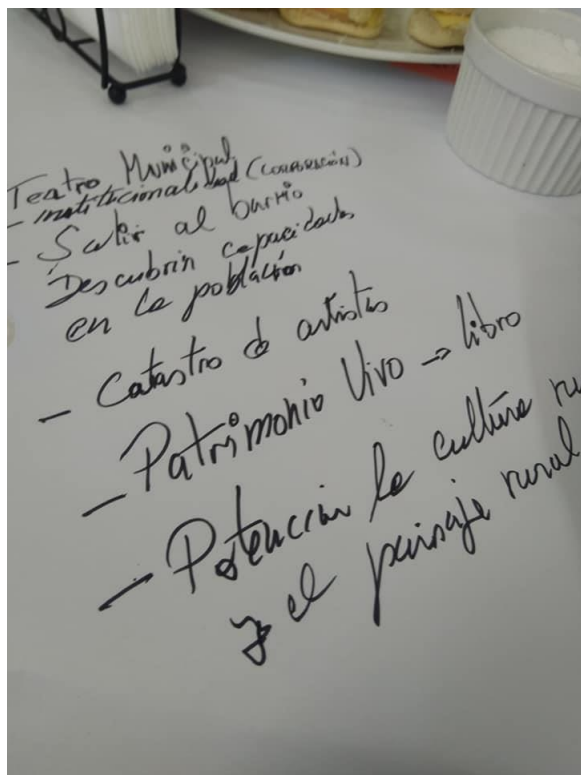 Teatro Municipal
- institucionalidad (CORPORACIÓN)
- Salir al barrio
Descubrir capacidades
en la población
- Catastro de artistas
- Patrimonio Vivo → libro
- Potenciar la cultura
y el paisaje rural